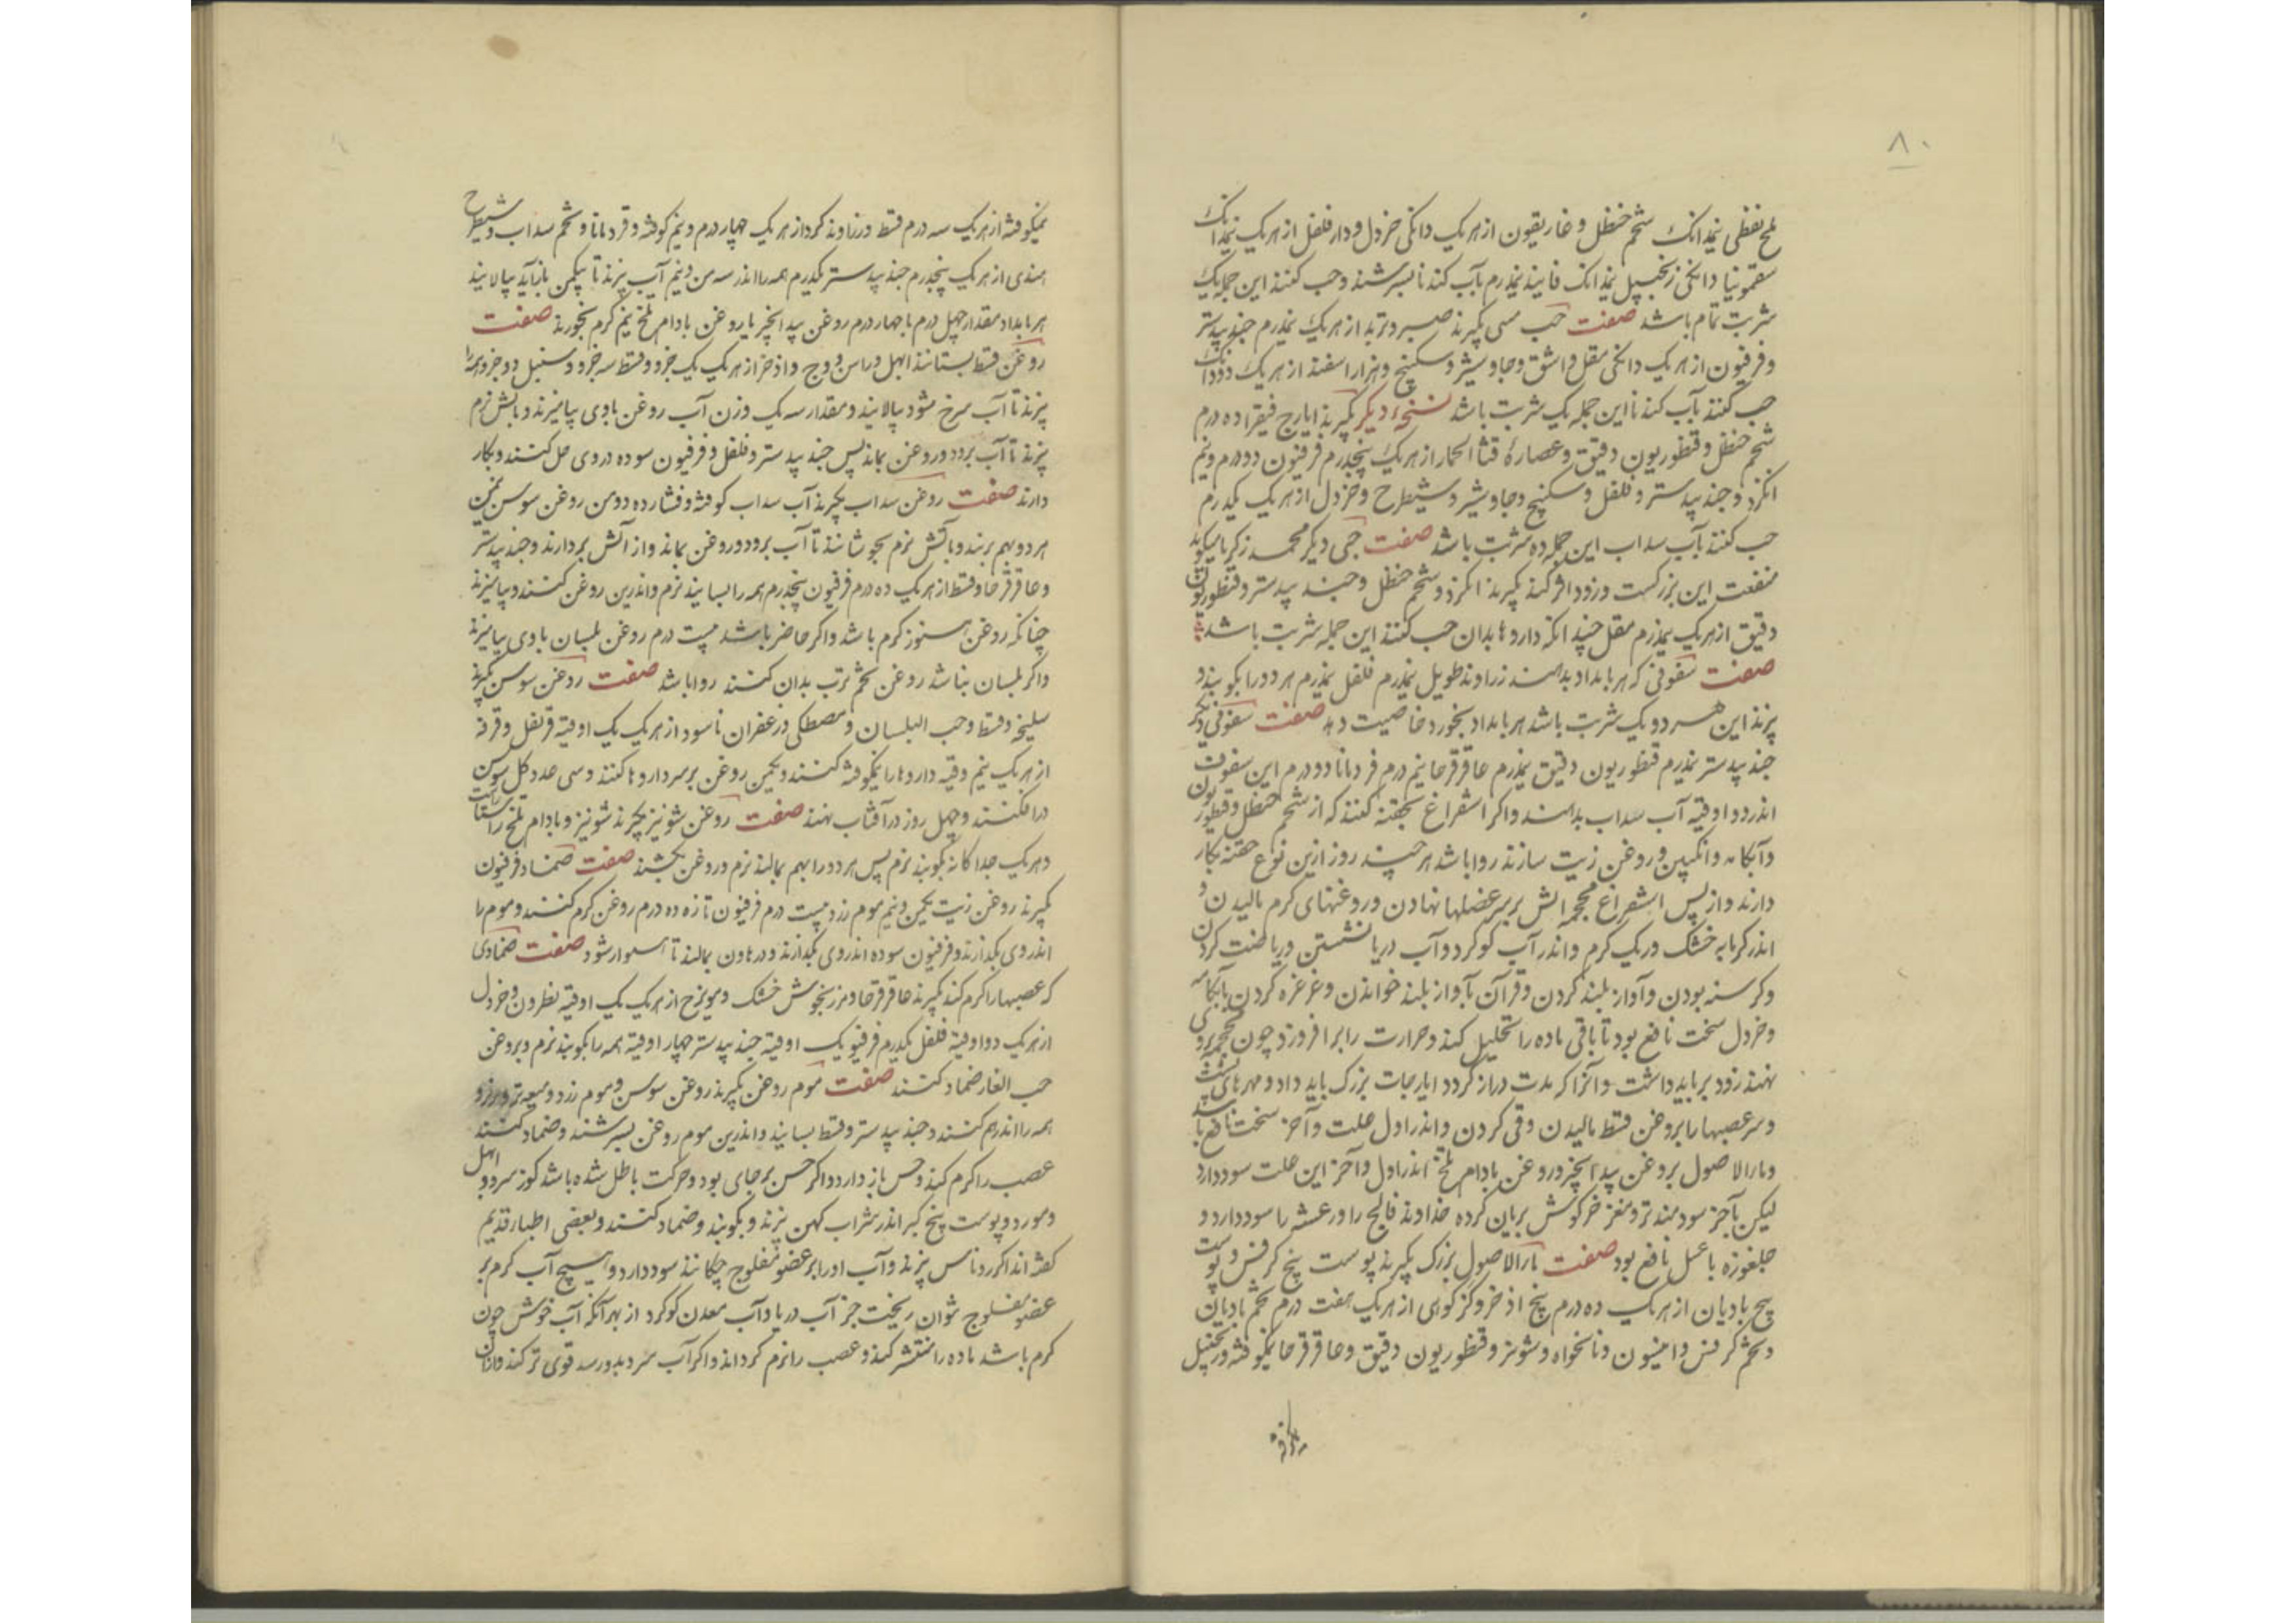 ۸۰
ملح نفطی نیمدانک شحم حنظل و غاریقون از هر یک دانکی خردل و دار فلفل از هر یک نیمدانک
سقمونیا دانکی زنجبیل نیمدانک فانیذ نیمدرم بآب کندنا بسرشند و حب کنند این جمله یک
شربت تمام باشد صفت حب منتن بکیرند صبر و تربد از هر یک نیمدرم جندبیدستر
و فرفیون از هر یک دانکی مقل و اشق و جاوشیر و سکبینج و هزار اسفند از هر یک دودانک
حب کنند بآب کندنا این جمله یک شربت باشد نسخهٔ دیکر بکیرند ایارج فیقرا ده درم
شحم حنظل و قنطوریون دقیق و عصارهٔ قثاالحمار از هر یک پنجدرم فرفیون دو درم و نیم
انکزد و جندبیدستر و فلفل و سکبینج و جاوشیر و شیطرج و خردل از هر یک یکدرم
حب کنند بآب سداب این جمله ده شربت باشد صفت حبی دیکر محمد زکریا میکوید
منفعت این بزرکست و زود اثر کند بکیرند انکزد و شحم حنظل و جندبیدستر و قنطوریون
دقیق از هر یک نیمدرم مقل چندانکه داروها بدان حب کنند این جمله شربت باشد
صفت سفوفی که هر بامداد بدهند زراوند طویل نیمدرم فلفل نیمدرم هر دو را بکوبند و
پزند این هر دو یک شربت باشد هر بامداد بخورد خاصیت دهد صفت سفوفی دیکر
جندبیدستر نیمدرم قنطوریون دقیق نیمدرم عاقرقرحا نیم درم قردمانا دو درم این سفوف
اندر دو اوقیه آب سداب بدهند و اکر استفراغ بحقنه کنند که از شحم حنظل و قنطوریون
و آبکامه و انکبین و روغن زیت سازند روا باشد هر چند روز ازین نوع حقنه بکار
دارند و از پس استفراغ محجمه آتش بر سر عضلها نهادن و روغنهای کرم مالیدن و
اندر کرمابه خشک و ریک کرم و اندر آب کوکرد و آب دریا نشستن و ریاضت کردن
و کرسنه بودن و آواز بلند کردن و قرآن بآواز بلند خواندن و غرغره کردن بآبکامه
و خردل سخت نافع بود تا باقی ماده را تحلیل کند و حرارت را برافروزد چون محجمه بروی
نهند زود بر باید داشت و آنرا که مدت دراز کردد ایارجات بزرک باید داد و مهرهای پشت
و سر عصبها را بروغن قسط مالیدن و قی کردن و اندر اول علت و آخر سخت نافع باشد
و ماءالاصول بروغن بیدانجیر و روغن بادام تلخ اندر اول و آخر این علت سود دارد
لیکن بآخر سودمندتر و مغز خرکوش بریان کرده خداوند فالج را و رعشه را سود دارد و
جلغوزه با عسل نافع بود صفت ماءالاصول بزرک بکیرند پوست بیخ کرفس و پوست
بیخ بادیان از هر یک ده درم بیخ اذخر و کزکوای از هر یک هفت درم تخم بادیان
و تخم کرفس و انیسون و نانخواه و شونیز و قنطوریون دقیق و عاقرقرحا نیمکوفته و زنجبیل
نیمکوفته از هر یک سه درم قسط و زراوند کرد از هر یک چهار درم و نیم کوفته و قردمانا و تخم سداب و شیطرج
هندی از هر یک پنجدرم جندبیدستر یکدرم همه را اندر سه من و نیم آب بپزند تا بیکمن بازآید بپالایند
هر بامداد مقدار چهل درم با چهار درم روغن بیدانجیر یا روغن بادام تلخ نیم کرم بخورند صفت
روغن قسط بستانند ابهل و راسن و وج و اذخر از هر یک یک جزو و قسط سه جزو و سنبل دو جزو همه را
بپزند تا آب سرخ شود بپالایند و مقدار سه یک وزن آب روغن باوی بیامیزند و بآتش نرم
بپزند تا آب برود و روغن بماند پس جندبیدستر و فلفل و فرفیون سوده در وی حل کنند و بکار
دارند صفت روغن سداب بکیرند آب سداب کوفته و فشارده دو من روغن سوسن نیم من
هر دو بهم بزنند و بآتش نرم بجوشانند تا آب برود و روغن بماند و از آتش بردارند و جندبیدستر
و عاقرقرحا و قسط از هر یک ده درم فرفیون پنجدرم همه را بسایند نرم و اندرین روغن کنند و بیامیزند
چنانکه روغن هنوز کرم باشد و اکر حاضر باشد بیست درم روغن بلسان باوی بیامیزند
و اکر بلسان نباشد روغن تخم ترب بدان کنند روا باشد صفت روغن سوسن بکیرند
سلیخه و قسط و حب البلسان و مصطکی و زعفران ناسود از هر یک یک اوقیه قرنفل و قرفه
از هر یک نیم وقیه داروها را نیمکوفته کنند و یکمن روغن بر سر داروها کنند و سی عدد کل سوسن
در افکنند و چهل روز در آفتاب نهند صفت روغن شونیز بکیرند شونیز و بادام تلخ راستاراست
و هر یک جداکانه بکوبند نرم پس هر دو را بهم بمالند نرم و روغن بکشند صفت ضماد فرفیون
بکیرند روغن زیت یکمن و نیم موم زرد بیست درم فرفیون تازه ده درم روغن کرم کنند و موم را
اندر وی بکدازند و فرفیون سوده اندر وی بکدازند و در هاون بمالند تا هموار شود صفت ضمادی
که عصبها را کرم کند بکیرند عاقرقرحا و مرزنجوش خشک و مویزج از هر یک یک اوقیه نطرون و خردل
از هر یک دو اوقیه فلفل یکدرم فرفیون یک اوقیه جندبیدستر چهار اوقیه همه را بکوبند نرم و بروغن
حب الغار ضماد کنند صفت موم روغن بکیرند روغن سوسن و موم زرد و میعه تر و
همه را اندر هم کنند و جندبیدستر و قسط بسایند و اندرین موم روغن بسرشند و ضماد کنند
عصب را کرم کند و حس باز دارد و اکر حس بر جای بود و حرکت باطل شده باشد کوز سرو و ابهل
و مورد و پوست بیخ کبر اندر شراب کهن بپزند و بکوبند و ضماد کنند و بعضی اطباء قدیم
کفته اند اکر روناس بپزند و آب او را بر عضو مفلوج چکانند سود دارد و هیچ آب کرم بر
عضو مفلوج نتوان ریخت جز آب دریا و آب معدن کوکرد از بهر آنکه آب خوش چون
کرم باشد ماده را منتشر کند و عصب را نرم کرداند و اکر آب سرد بدو رسد قوی تر کند و از آن